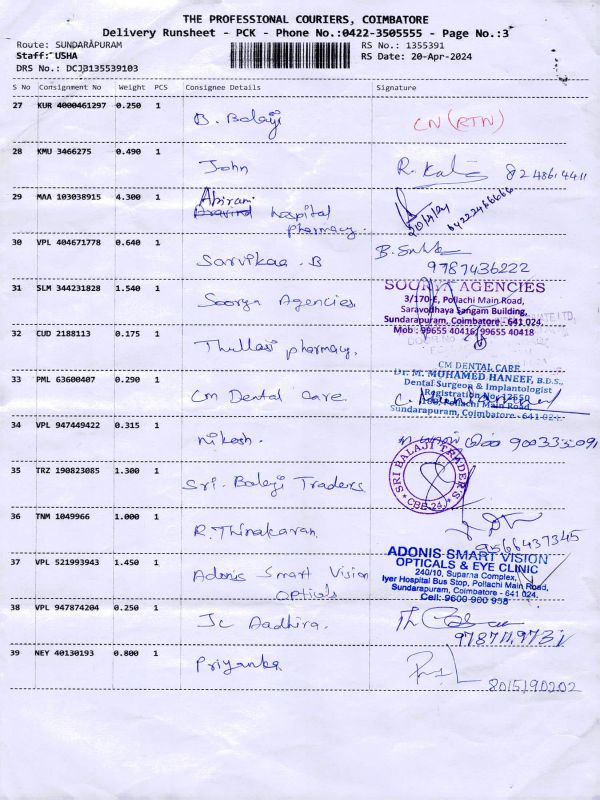 THE PROFESSIONAL COURIERS, COIMBATORE
Delivery Runsheet - PCK - Phone No.:0422-3505555 - Page No.:3
Route: SUNDARAPURAM
RS No.: 1355391
Staff: USHA
RS Date: 20-Apr-2024
DRS No.: DCJB135539103
S No Consignment No Weight PCS Consignee Details Signature
27 KUR 4000461297 0.250 1 B. Balaji CN (RTN)
28 KMU 3466275 0.490 1 John R. 8248614411
29 MAA 103038915 4.300 1 Abirami hospital pharmacy. 20/4/24
30 VPL 404671778 0.640 1 Sarvikaa . B 9787436222
31 SLM 344231828 1.540 1 Soorya Agencies
SOORYA AGENCIES
3/170-E, Pollachi Main Road,
Saravodhaya Sangam Building,
Sundarapuram, Coimbatore - 641 024.
Mob : 99655 40416, 99655 40418
32 CUD 2188113 0.175 1 Thullasi pharmacy.
33 PML 63600407 0.290 1 Cm Dental Care.
CM DENTAL CARE
Dr. M. MOHAMED HANEEF, B.D.S.,
Dental Surgeon & Implantologist
Registration No: 12550
Pollachi Main Road
Sundarapuram, Coimbatore
34 VPL 947449422 0.315 1 Nikesh .
35 TRZ 190823085 1.300 1 Sri. Balaji Traders
SRI BALAJI TRADERS
CBE-24
36 TNM 1049966 1.000 1 R. Thinakaran 9566437345
37 VPL 521993943 1.450 1 Adonis Smart Vision opticals
ADONIS SMART VISION
OPTICALS & EYE CLINIC
240/10, Suparna Complex,
Iyer Hospital Bus Stop, Pollachi Main Road,
Sundarapuram, Coimbatore - 641 024.
Cell: 9600 900 958
38 VPL 947874204 0.250 1 Jc Aadhira.
39 NEY 40130193 0.800 1 Priyanka 8015190202